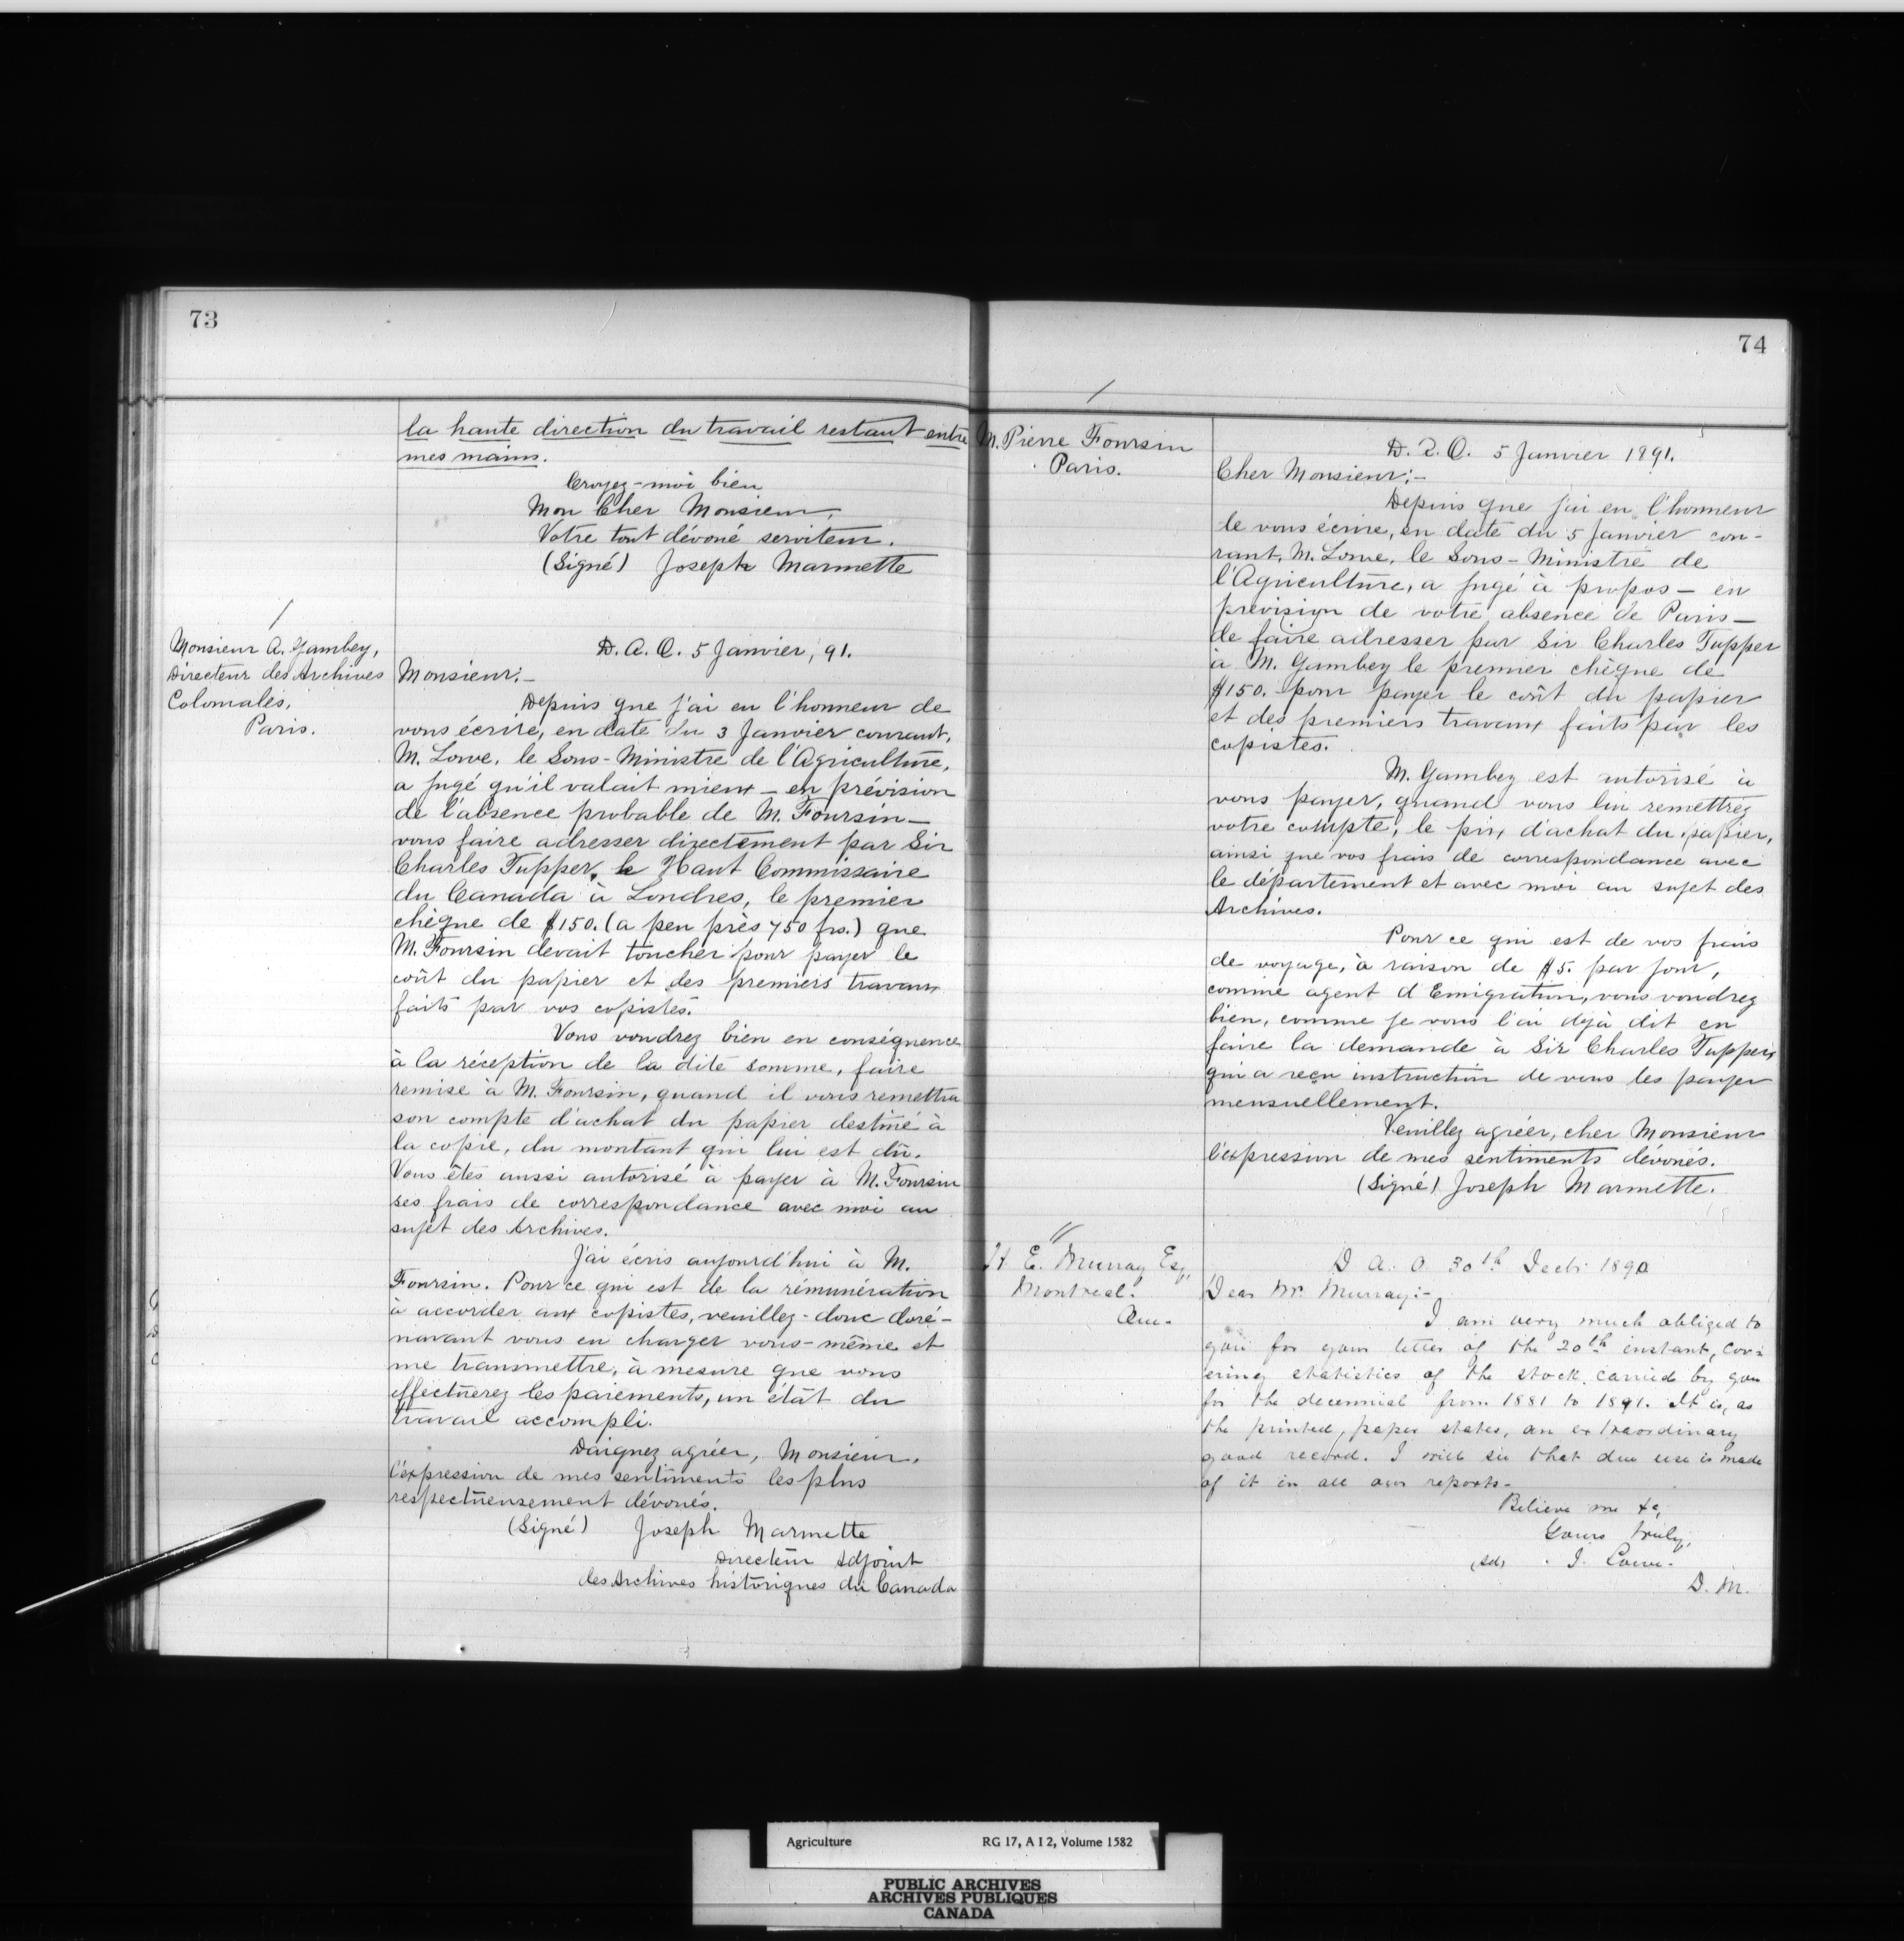 73
la haute direction du travail restant entre
mes mains.
Croyez-moi bien
Mon Cher Monsieur,
Votre tout dévoué serviteur.
(Signé) Joseph Marmette
Monsieur A. Gambey,
Directeur des Archives
Coloniales,
Paris.
D. A. O. 5 Janvier, 91.
Monsieur:-
Depuis que j'ai eu l'honneur de
vous écrire, en date du 3 Janvier courant,
M. Lowe, le Sous-Ministre de l'Agriculture,
a jugé qu'il valait mieux - en prévision
de l'absence probable de M. Foursin -
vous faire adresser directement par Sir
Charles Tupper, le Haut Commissaire
du Canada à Londres, le premier
chèque de $150. (a peu près 750 frs.) que
M. Foursin devait toucher pour payer le
coût du papier et des premiers travaux
faits par vos copistes.
Vous voudrez bien en conséquence
à la réception de la dite somme, faire
remise à M. Foursin, quand il vous remettra
son compte d'achat du papier destiné à
la copie, du montant qui lui est dû.
Vous êtes aussi autorisé à payer à M. Foursin
ses frais de correspondance avec moi au
sujet des Archives.
J'ai écris aujourd'hui à M.
Foursin. Pour ce qui est de la rémunération
à accorder aux copistes, veuillez-donc doré-
navant vous en charger vous-même et
me transmettre, à mesure que vous
effectuerez les paiements, un état du
travail accompli.
Daignez agréer, Monsieur,
l'expression de mes sentiments les plus
respectueusement dévoués.
(Signé) Joseph Marmette
Directeur Adjoint
des Archives historiques du Canada
74
M. Pierre Foursin
Paris.
D. A. O. 5 Janvier 1891.
Cher Monsieur:-
Depuis que j'ai eu l'honneur
de vous écrire, en date du 5 Janvier cou-
rant, M. Lowe, le Sous-Ministre de
l'Agriculture, a jugé à propos - en
prévision de votre absence de Paris -
de faire adresser par Sir Charles Tupper
à M. Gambey le premier chèque de
$150. pour payer le coût du papier
et des premiers travaux faits par les
copistes.
M. Gambey est autorisé à
vous payer, quand vous lui remettrez
votre compte, le prix d'achat du papier,
ainsi que vos frais de correspondance avec
le département et avec moi au sujet des
Archives.
Pour ce qui est de vos frais
de voyage, à raison de $5. par jour,
comme agent d'Emigration, vous voudrez
bien, comme je vous l'ai déjà dit en
faire la demande à Sir Charles Tupper,
qui a reçu instruction de vous les payer
mensuellement.
Veuillez agréer, cher Monsieur
l'expression de mes sentiments dévoués.
(Signé) Joseph Marmette.
H. E. Murray Esq,
Montreal.
D. A. O. 30th Decbr 1890
Dear Mr. Murray:-
I am very much obliged to
you for your letter of the 20th instant, cov-
ering statistics of the stock carried by you
for the decennial from 1881 to 1891. It is, as
the printed paper states, an extraordinary
good record. I will see that due use is made
of it in all our reports.
Believe me &c,
Yours truly,
(Sd) J. Lowe.
D. M.
Agriculture RG 17, A I 2, Volume 1582
PUBLIC ARCHIVES
ARCHIVES PUBLIQUES
CANADA